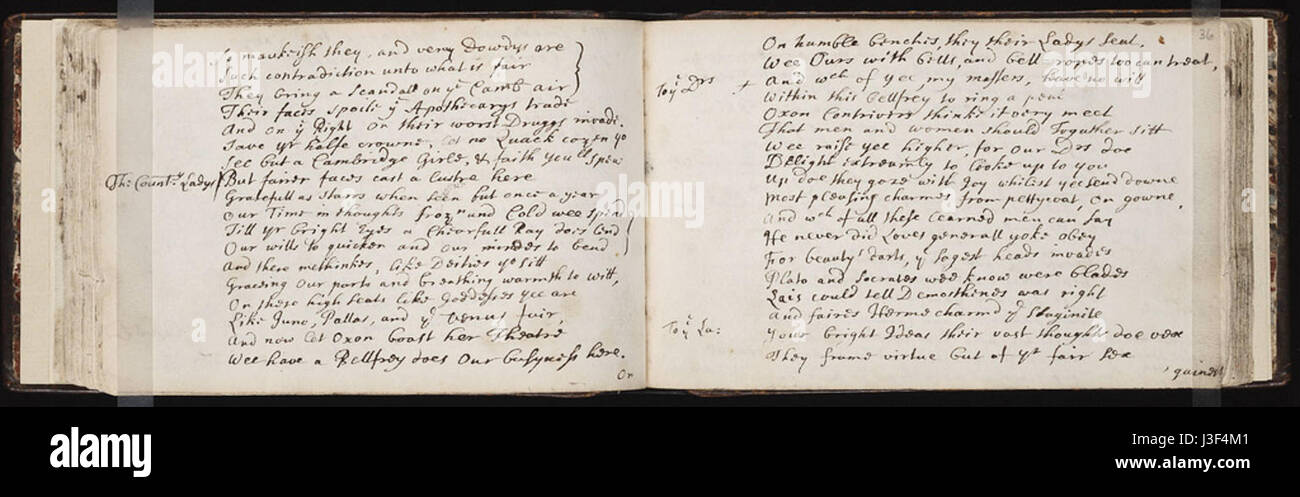 So maukish they, and very Dowdys are
Such contradiction unto what is fair
They bring a Scandall on yᵉ Camb air
Their faces spoile yᵉ Apothecarys trade
And on yᵉ Right on their worst Druggs invade.
Save yʳ halfe crowne, let no Quack cozen yo
See but a Cambridge Girle, & faith you'l spew
The Countʳʸ Ladys But fairer faces cast a lustre here
Gratefull as Starrs when seen but once a year
Our Time in thoughts frozⁿ and Cold wee spend
Till yʳ bright Eyes a Cheerfull Ray does lend
Our wills to quicken and our mindes to bend
And there methinkes, like Deities yo sitt
Graceing Our parts and breathing warmth to witt,
On these high seats like Goddesses yee are
Like Juno, Pallas, and yᵉ Venus fair,
And now let Oxon boast her Theatre
Wee have a Bellfrey does Our busyness here.
On
36
On humble benches, they their Ladys seat,
Wee Ours with bells, and bell ropes too can treat,
To yᵉ Drs + And wᶜʰ of yee, my masters, have no will
Within this Bellfrey to ring a peal
Oxon Contrivers thinke it very meet
That men and women should Togather sitt
Wee raise yee higher, for Our Drs doe
Delight extreamly to looke up to you
Up doe they gaze with Joy whilst yee send downe
Most pleasing charmes from pettycoat, on gowne,
And wᶜʰ of all these learned men can say
He never did Loves generall yoke obey
For beautyˢ darts, yᵉ sagest heads invades
Plato and Socrates wee know were blades
Lais could tell Demosthines was right
And faires Herme charmd yᵉ Stagirite
To yᵉ La: Your bright Ideas their vast thoughts doe vex
They frame virtue but of yᵗ fair sex
J3F4M1
alamy stock photo